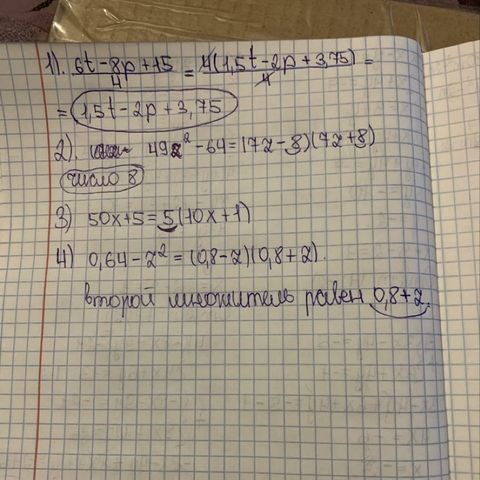 1). 6t-8p+15/4 = 4(1,5t-2p+3,75)/4 =
= 1,5t-2p+3,75
2). 49z²-64=(7z-8)(7z+8)
число 8
3) 50x+5=5(10x+1)
4) 0,64-z²=(0,8-z)(0,8+z).
второй множитель равен 0,8+z.